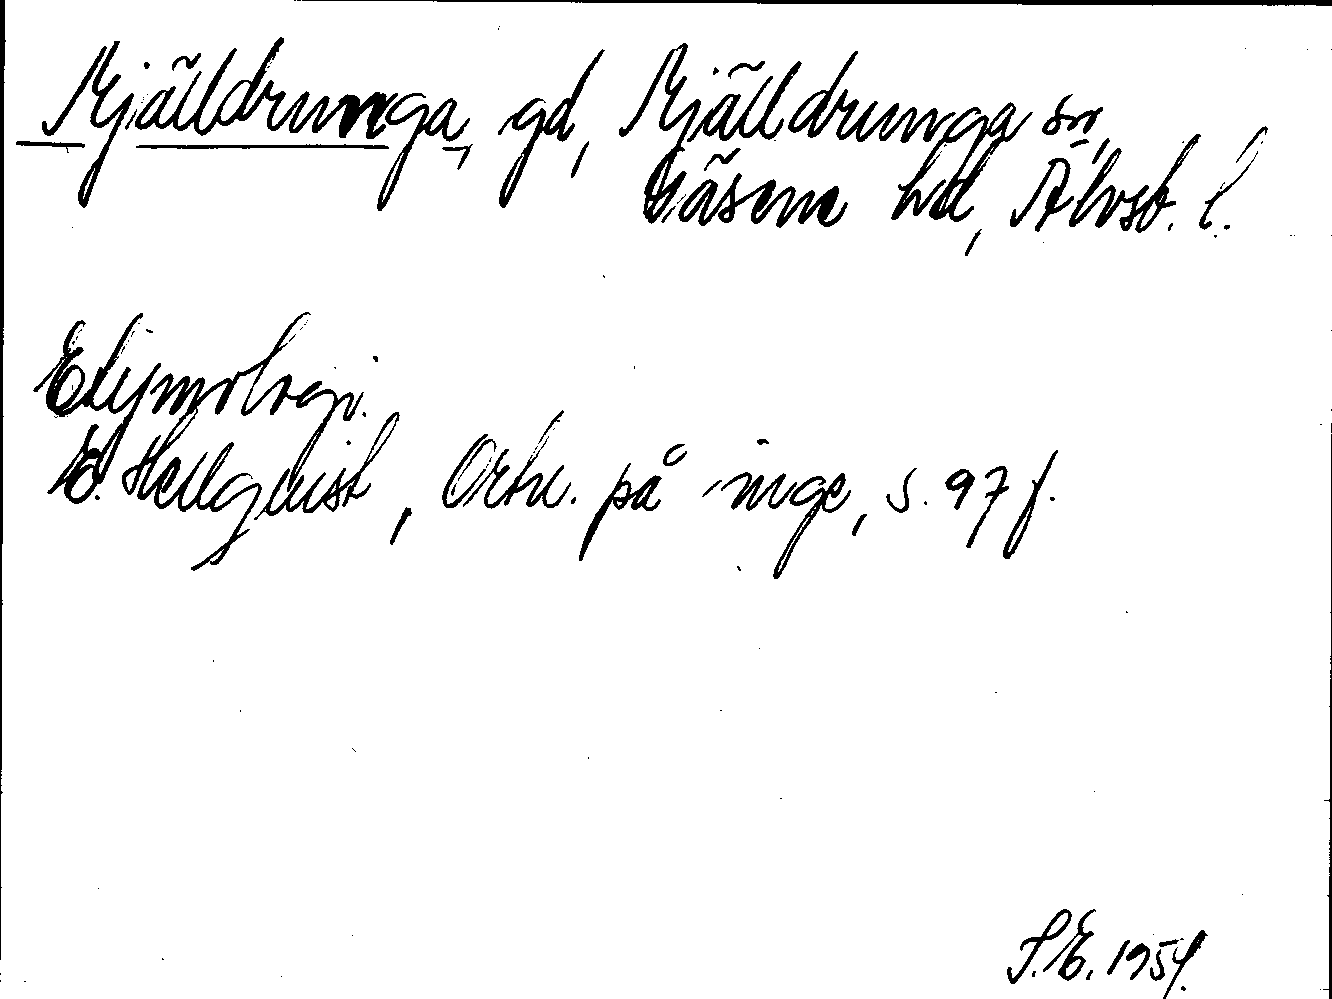 Kjälldrunga, gd, Kjälldrunga sn,
Gäsene hd, Älvsb. l.
Etymologi.
E. Hellquist, Ortn. på -inge, s. 97 f.
S.E. 1954.